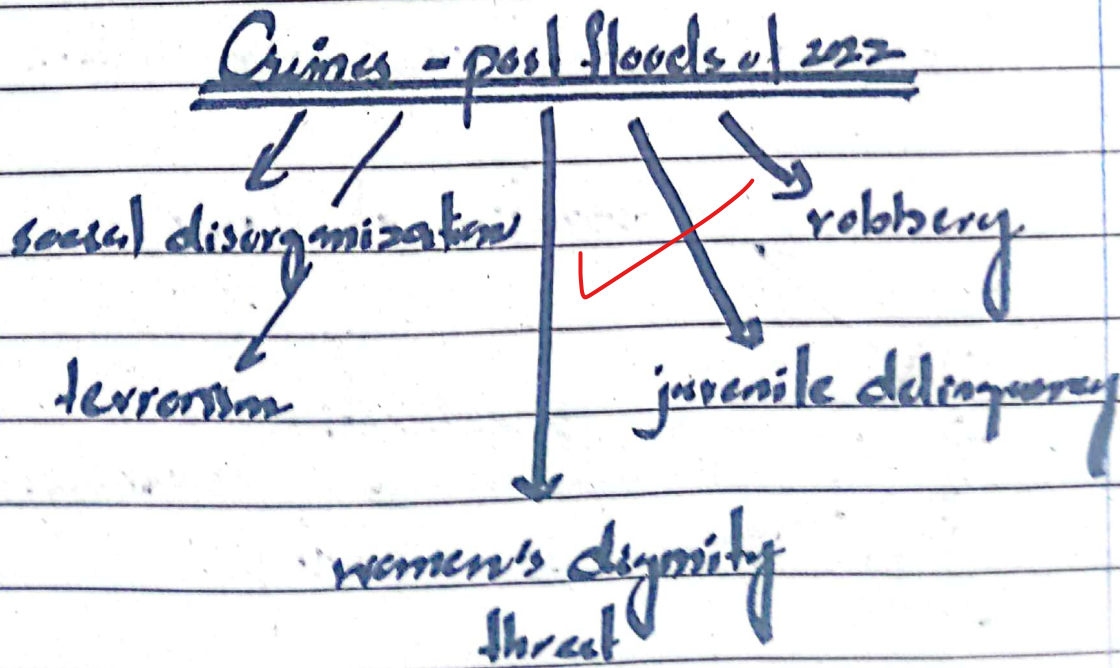 Crimes - post floods of 2022
social disorganization
robbery
terrorism
juvenile delinquency
women's dignity
threat